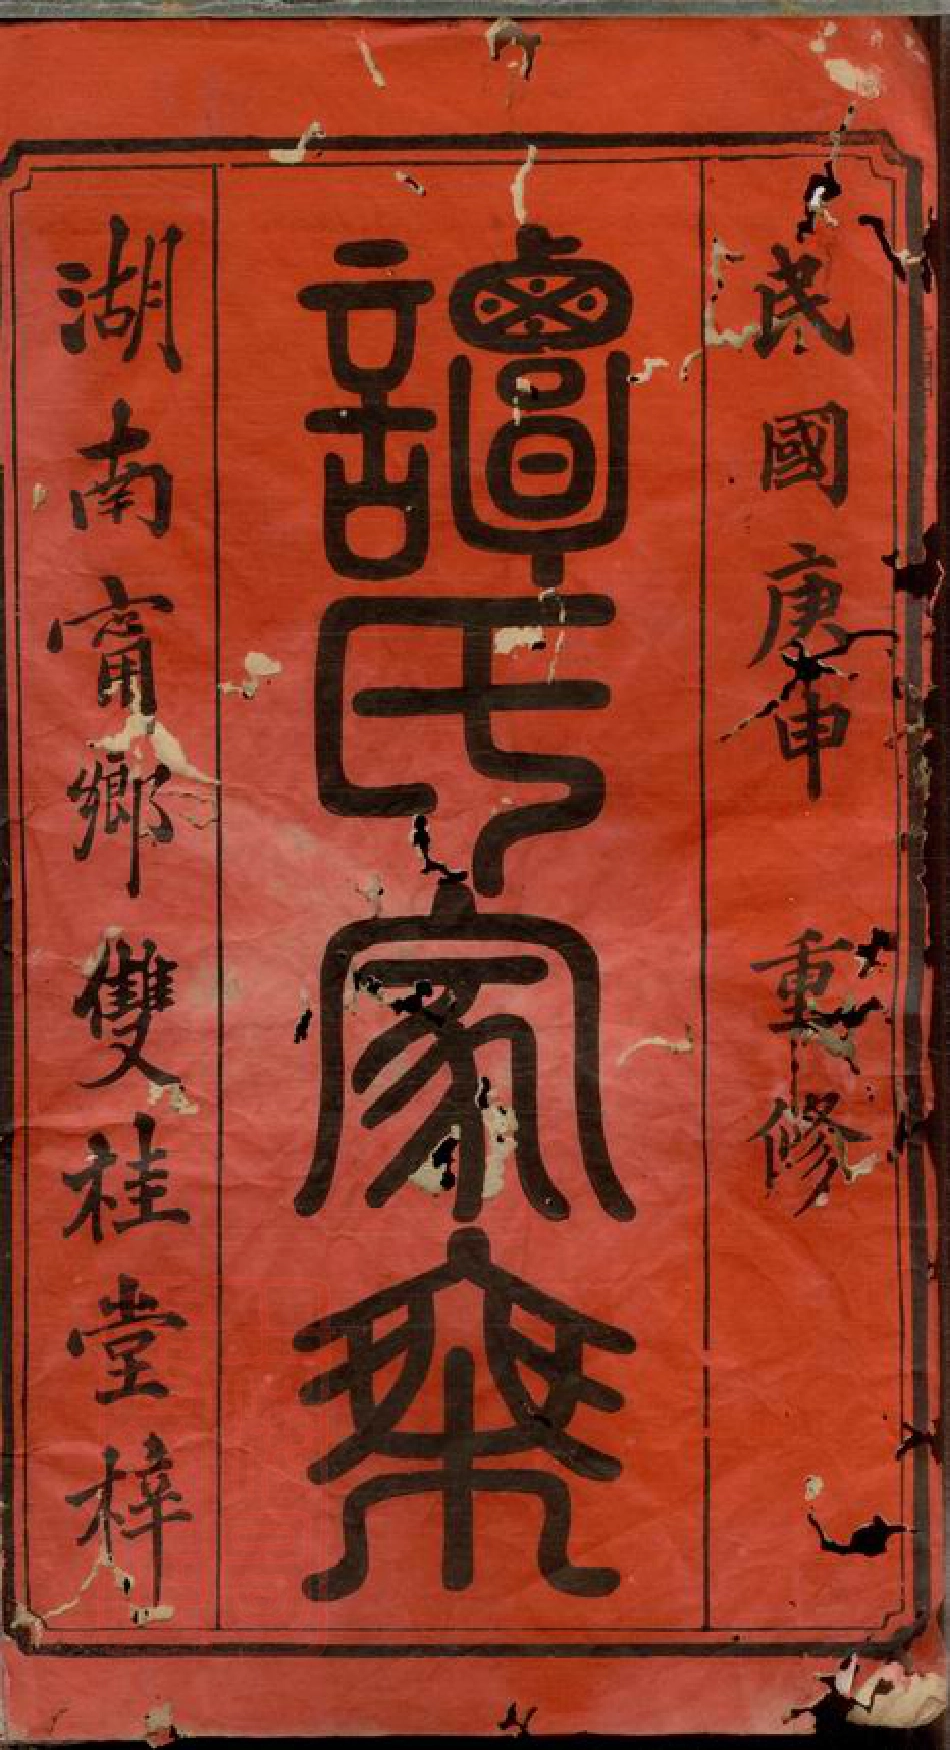 民國庚申 重修
譚氏家乘
湖南甯鄉雙桂堂梓